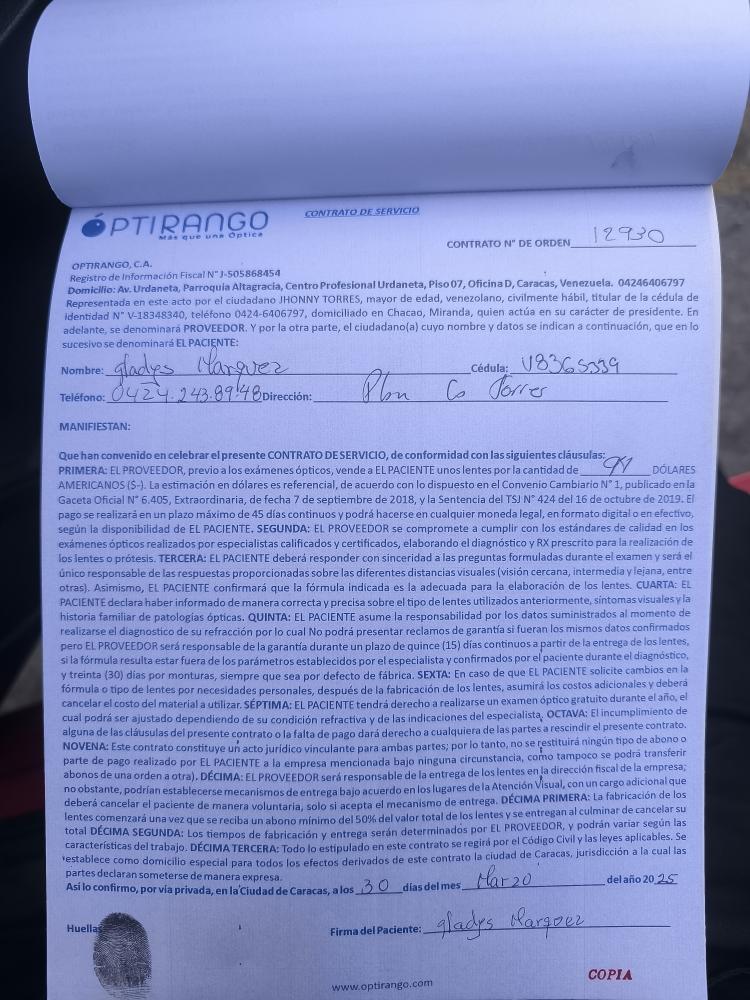 CONTRATO DE SERVICIO
ÓPTIRANGO
Más que una Óptica
CONTRATO N° DE ORDEN 12930
OPTIRANGO, C.A.
Registro de Información Fiscal N°J-505868454
Domicilio: Av. Urdaneta, Parroquia Altagracia, Centro Profesional Urdaneta, Piso 07, Oficina D, Caracas, Venezuela. 04246406797
Representada en este acto por el ciudadano JHONNY TORRES, mayor de edad, venezolano, civilmente hábil, titular de la cédula de
identidad N° V-18348340, teléfono 0424-6406797, domiciliado en Chacao, Miranda, quien actúa en su carácter de presidente. En
adelante, se denominará PROVEEDOR. Y por la otra parte, el ciudadano(a) cuyo nombre y datos se indican a continuación, que en lo
sucesivo se denominará EL PACIENTE:
Nombre: gladys Marquez Cédula: V8365539
Teléfono: 0424.243.89.48 Dirección: Torres
MANIFIESTAN:
Que han convenido en celebrar el presente CONTRATO DE SERVICIO, de conformidad con las siguientes cláusulas:
PRIMERA: EL PROVEEDOR, previo a los exámenes ópticos, vende a EL PACIENTE unos lentes por la cantidad de DÓLARES
AMERICANOS (S-). La estimación en dólares es referencial, de acuerdo con lo dispuesto en el Convenio Cambiario N° 1, publicado en la
Gaceta Oficial N° 6.405, Extraordinaria, de fecha 7 de septiembre de 2018, y la Sentencia del TSJ N° 424 del 16 de octubre de 2019. El
pago se realizará en un plazo máximo de 45 días continuos y podrá hacerse en cualquier moneda legal, en formato digital o en efectivo,
según la disponibilidad de EL PACIENTE. SEGUNDA: EL PROVEEDOR se compromete a cumplir con los estándares de calidad en los
exámenes ópticos realizados por especialistas calificados y certificados, elaborando el diagnóstico y RX prescrito para la realización de
los lentes o prótesis. TERCERA: EL PACIENTE deberá responder con sinceridad a las preguntas formuladas durante el examen y será el
único responsable de las respuestas proporcionadas sobre las diferentes distancias visuales (visión cercana, intermedia y lejana, entre
otras). Asimismo, EL PACIENTE confirmará que la fórmula indicada es la adecuada para la elaboración de los lentes. CUARTA: EL
PACIENTE declara haber informado de manera correcta y precisa sobre el tipo de lentes utilizados anteriormente, síntomas visuales y la
historia familiar de patologías ópticas. QUINTA: EL PACIENTE asume la responsabilidad por los datos suministrados al momento de
realizarse el diagnostico de su refracción por lo cual No podrá presentar reclamos de garantía si fueran los mismos datos confirmados
pero EL PROVEEDOR será responsable de la garantía durante un plazo de quince (15) días continuos a partir de la entrega de los lentes,
si la fórmula resulta estar fuera de los parámetros establecidos por el especialista y confirmados por el paciente durante el diagnóstico,
y treinta (30) días por monturas, siempre que sea por defecto de fábrica. SEXTA: En caso de que EL PACIENTE solicite cambios en la
fórmula o tipo de lentes por necesidades personales, después de la fabricación de los lentes, asumirá los costos adicionales y deberá
cancelar el costo del material a utilizar. SÉPTIMA: EL PACIENTE tendrá derecho a realizarse un examen óptico gratuito durante el año, el
cual podrá ser ajustado dependiendo de su condición refractiva y de las indicaciones del especialista. OCTAVA: El incumplimiento de
alguna de las cláusulas del presente contrato o la falta de pago dará derecho a cualquiera de las partes a rescindir el presente contrato.
NOVENA: Este contrato constituye un acto jurídico vinculante para ambas partes; por lo tanto, no se restituirá ningún tipo de abono o
parte de pago realizado por EL PACIENTE a la empresa mencionada bajo ninguna circunstancia, como tampoco se podrá transferir
abonos de una orden a otra). DÉCIMA: EL PROVEEDOR será responsable de la entrega de los lentes en la dirección fiscal de la empresa;
no obstante, podrían establecerse mecanismos de entrega bajo acuerdo en los lugares de la Atención Visual, con un cargo adicional que
deberá cancelar el paciente de manera voluntaria, solo si acepta el mecanismo de entrega. DÉCIMA PRIMERA: La fabricación de los
lentes comenzará una vez que se reciba un abono mínimo del 50% del valor total de los lentes y se entregan al culminar de cancelar su
total DÉCIMA SEGUNDA: Los tiempos de fabricación y entrega serán determinados por EL PROVEEDOR, y podrán variar según las
características del trabajo. DÉCIMA TERCERA: Todo lo estipulado en este contrato se regirá por el Código Civil y las leyes aplicables. Se
establece como domicilio especial para todos los efectos derivados de este contrato la ciudad de Caracas, jurisdicción a la cual las
partes declaran someterse de manera expresa.
Así lo confirmo, por vía privada, en la Ciudad de Caracas, a los 30 días del mes Marzo del año 2025
Huellas
Firma del Paciente: gladys Marquez
www.optirango.com
COPIA